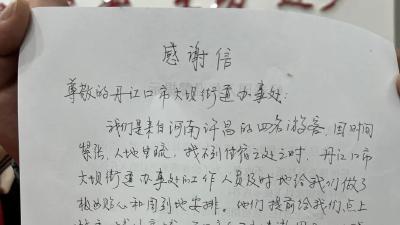 感谢信
尊敬的丹江口市大坝街道办事处:
我们是来自河南许昌的四名游客,因时间
紧张,人地生疏,找不到住宿之处之时,丹江口市
大坝街道办事处的工作人员及时地给我们做了
极为贴心和周到地安排。他们提前给我们点上